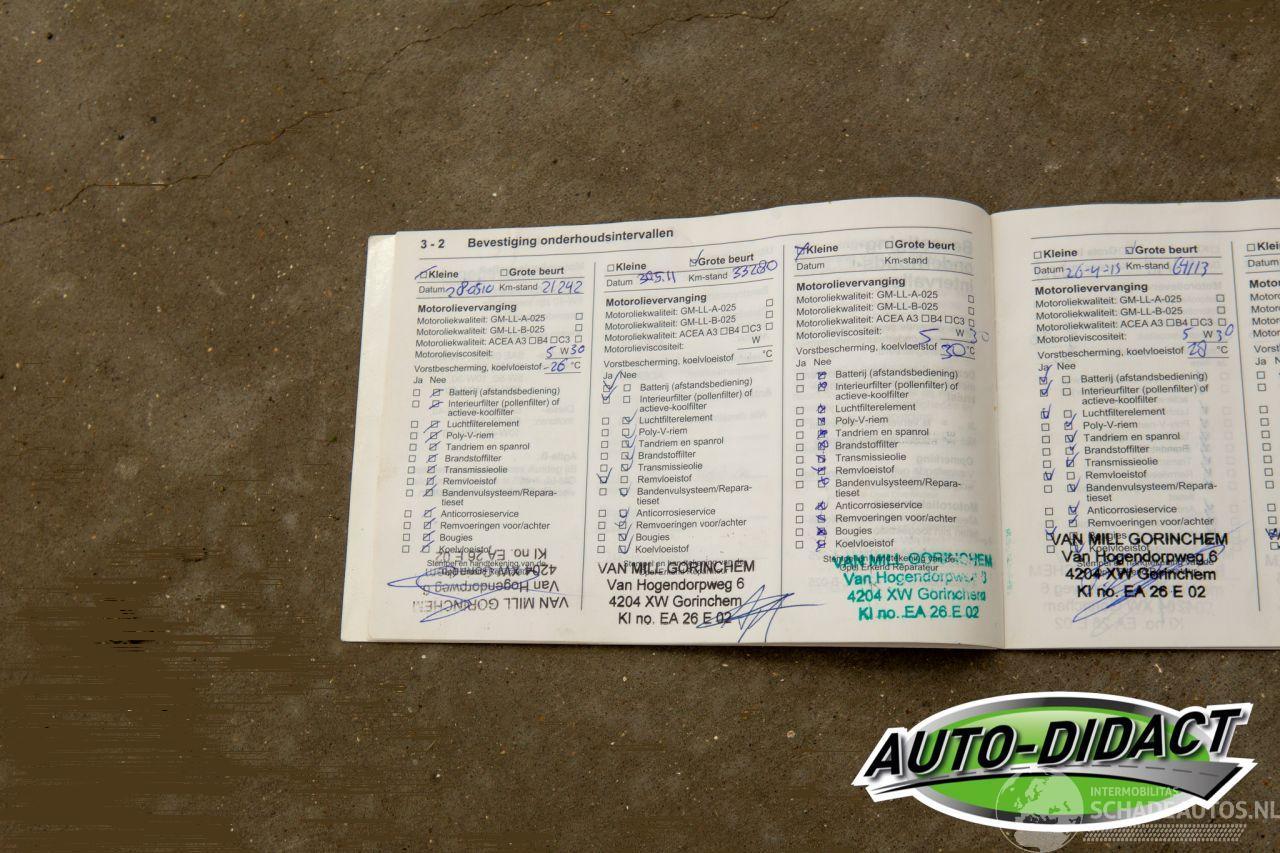 3 - 2 Bevestiging onderhoudsintervallen
Kleine Grote beurt
Datum Km-stand 21242
Motorolievervanging
Motoroliekwaliteit: GM-LL-A-025
Motoroliekwaliteit: GM-LL-B-025
Motoroliekwaliteit: ACEA A3 B4 C3
Motorolieviscositeit: 5 W 30
Vorstbescherming, koelvloeistof -26 °C
Ja Nee
Batterij (afstandsbediening)
Interieurfilter (pollenfilter) of
actieve-koolfilter
Luchtfilterelement
Poly-V-riem
Tandriem en spanrol
Brandstoffilter
Transmissieolie
Remvloeistof
Bandenvulsysteem/Repara-
tieset
Anticorrosieservice
Remvoeringen voor/achter
Bougies
Koelvloeistof
Stempel en handtekening van de
VAN MILL GORINCHEM
Van Hogendorpweg 6
4204 XW Gorinchem
KI no. EA 26 E 02
Kleine Grote beurt
Datum Km-stand 33280
Motorolievervanging
Motoroliekwaliteit: GM-LL-A-025
Motoroliekwaliteit: GM-LL-B-025
Motoroliekwaliteit: ACEA A3 B4 C3
Motorolieviscositeit: W
Vorstbescherming, koelvloeistof °C
Ja Nee
Batterij (afstandsbediening)
Interieurfilter (pollenfilter) of
actieve-koolfilter
Luchtfilterelement
Poly-V-riem
Tandriem en spanrol
Brandstoffilter
Transmissieolie
Remvloeistof
Bandenvulsysteem/Repara-
tieset
Anticorrosieservice
Remvoeringen voor/achter
Bougies
Koelvloeistof
VAN MILL GORINCHEM
Van Hogendorpweg 6
4204 XW Gorinchem
KI no. EA 26 E 02
Kleine Grote beurt
Datum Km-stand
Motorolievervanging
Motoroliekwaliteit: GM-LL-A-025
Motoroliekwaliteit: GM-LL-B-025
Motoroliekwaliteit: ACEA A3 B4 C3
Motorolieviscositeit: 5 W 30
Vorstbescherming, koelvloeistof 30 °C
Ja Nee
Batterij (afstandsbediening)
Interieurfilter (pollenfilter) of
actieve-koolfilter
Luchtfilterelement
Poly-V-riem
Tandriem en spanrol
Brandstoffilter
Transmissieolie
Remvloeistof
Bandenvulsysteem/Repara-
tieset
Anticorrosieservice
Remvoeringen voor/achter
Bougies
Koelvloeistof
Stempel en handtekening van de
Opel Erkend Reparateur
VAN MILL GORINCHEM
Van Hogendorpweg 6
4204 XW Gorinchem
KI no. EA 26 E 02
Kleine Grote beurt
Datum 26-4-13 Km-stand 64113
Motorolievervanging
Motoroliekwaliteit: GM-LL-A-025
Motoroliekwaliteit: GM-LL-B-025
Motoroliekwaliteit: ACEA A3 B4 C3
Motorolieviscositeit: 5 W 30
Vorstbescherming, koelvloeistof °C
Ja Nee
Batterij (afstandsbediening)
Interieurfilter (pollenfilter) of
actieve-koolfilter
Luchtfilterelement
Poly-V-riem
Tandriem en spanrol
Brandstoffilter
Transmissieolie
Remvloeistof
Bandenvulsysteem/Repara-
tieset
Anticorrosieservice
Remvoeringen voor/achter
Bougies
Koelvloeistof
VAN MILL GORINCHEM
Van Hogendorpweg 6
4204 XW Gorinchem
KI no. EA 26 E 02
AUTO-DIDACT
INTERMOBILITAS
SCHADEAUTOS.NL